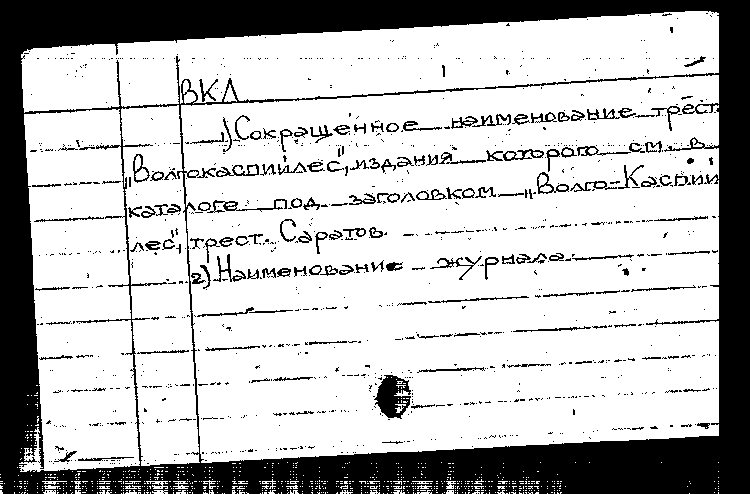 ВКЛ
1) Сокращенное наименование трест
„Волгокаспийлес", издания которого см. в
каталоге под заголовком „Волго-Каспий
лес", трест. Саратов.
2) Наименование журнала.